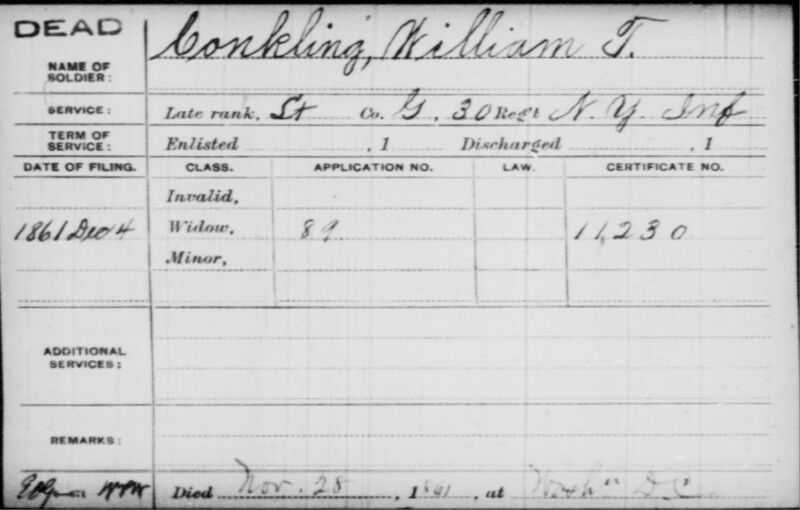 DEAD
NAME OF SOLDIER: Conkling, William T.
SERVICE: Late rank, Lt Co. G, 30 Reg't N.Y. Inf
TERM OF SERVICE: Enlisted , 1 Discharged , 1
DATE OF FILING. CLASS. APPLICATION NO. LAW. CERTIFICATE NO.
Invalid,
1861 Dec 4 Widow, 89 11,230
Minor,
ADDITIONAL SERVICES:
REMARKS:
Died Nov. 28, 1861, at Wash'n D.C.